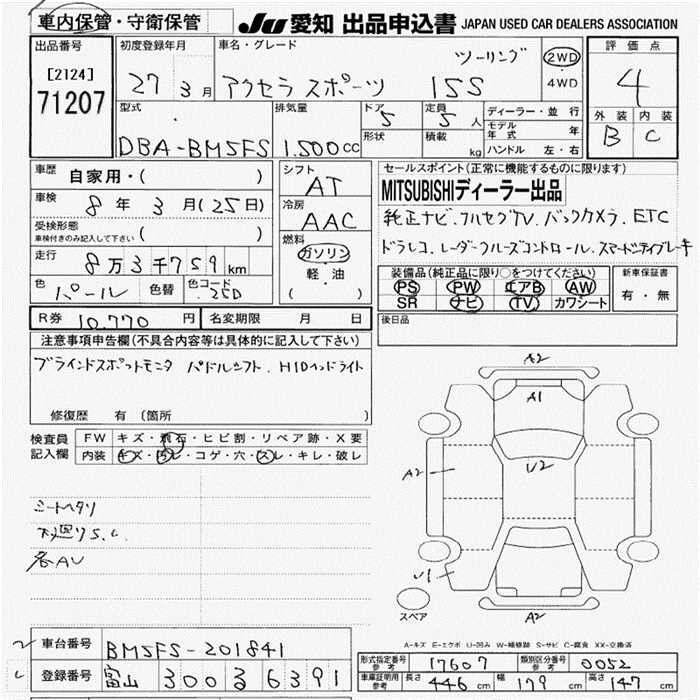 車内保管・守衛保管 JU愛知 出品申込書 JAPAN USED CAR DEALERS ASSOCIATION
出品番号 初度登録年月 車名・グレード ツーリング 2WD 評価点
[2124] 27 3月 アクセラ スポーツ 15S 4WD 4
71207 外装 内装
型式 排気量 ドア 定員 ディーラー・並行 B C
5 5人 モデル年式 年
DBA-BM5FS 1.500cc 形状 積載 kg ハンドル 左・右
車歴 自家用・( ) シフト AT セールスポイント(正常に機能するものに限ります)
MITSUBISHIディーラー出品
車検 8年 3月(25日) 冷房 AAC 純正ナビ.フルセグTV.バックカメラ.ETC
受検形態
車検付きのみ記入して下さい( ) 燃料 ガソリン ドラレコ.レーダークルーズコントロール.スマートシティブレーキ
走行 8万3千759km 軽・油 装備品(純正品に限り○をつけてください) 新車保証書
色 パール 色替 色コード 25D ( ) PS PW エアB AW 有・無
SR ナビ TV カワシート
R券 10,770円 名変期限 月 日 後日品
注意事項申告欄(不具合内容等は具体的に記入して下さい)
ブラインドスポットモニタ パドルシフト.HIDヘッドライト
修復歴 有(箇所 )
検査員 FW キズ・飛石・ヒビ割・リペア跡・X要
記入欄 内装 キズ・汚レ・コゲ・穴・スレ・キレ・破レ
A2
A1
U2
A2
シートヘタリ
下廻りS.C
各AU
U1
スペア
A2
A-キズ E-エクボ U-凹み W-補修跡 S-サビ C-腐食 XX-交換済
車台番号 BM5FS-201841
登録番号 富山 300 る 6391
形式指定番号 参考 17607 類別区分番号 参考 0052
車庫証明用 参考 長さ 446cm 幅 179cm 高さ 147cm